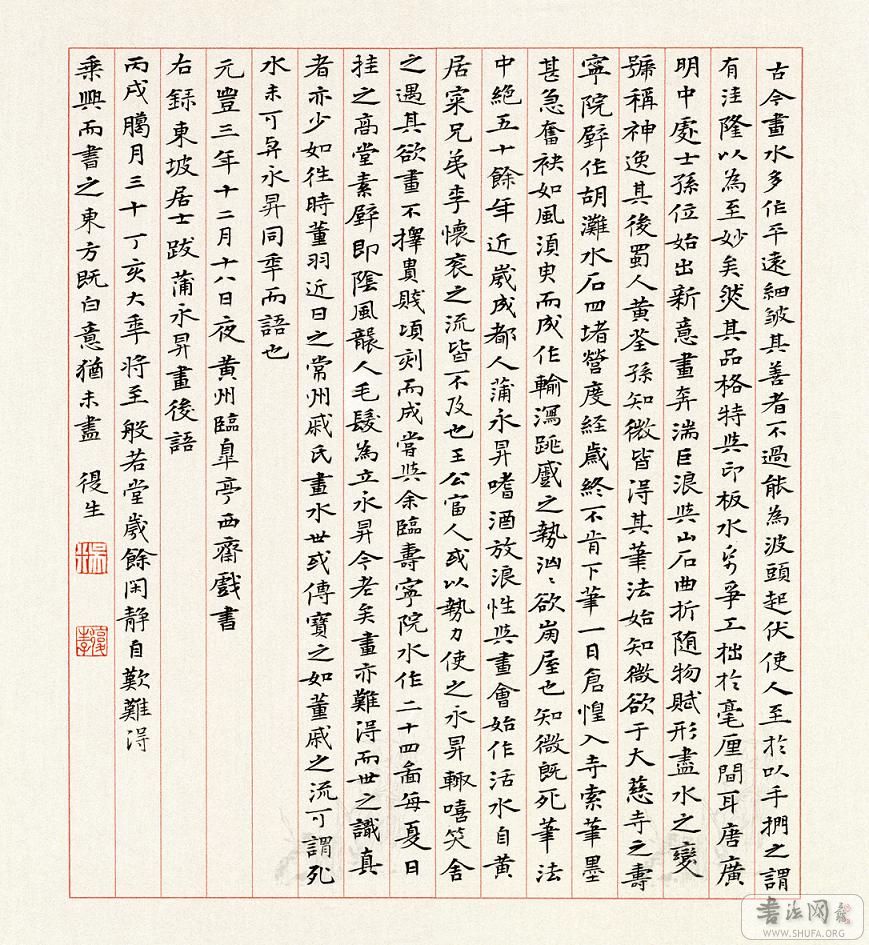 古今畫水多作平遠細皺其善者不過能為波頭起伏使人至於以手捫之謂
有洼隆以為至妙矣然其品格特與印板水紙爭工拙於毫厘間耳唐廣
明中處士孫位始出新意畫奔湍巨浪與山石曲折隨物賦形盡水之變
號稱神逸其後蜀人黃筌孫知微皆得其筆法始知微欲于大慈寺之壽
寧院壁作胡灘水石四堵營度經歲終不肯下筆一日倉惶入寺索筆墨
甚急奮袂如風須臾而成作輸瀉跳蹙之勢洶〻欲崩屋也知微既死筆法
中絕五十餘年近歲成都人蒲永昇嗜酒放浪性與畫會始作活水自黃
居寀兄弟李懷袞之流皆不及也王公富人或以勢力使之永昇輒嘻笑舍
之遇其欲畫不擇貴賤頃刻而成嘗與余臨壽寧院水作二十四面每夏日
挂之高堂素壁即陰風襲人毛髮為立永昇今老矣畫亦難得而世之識真
者亦少如往時董羽近日之常州戚氏畫水世或傳寶之如董戚之流可謂死
水未可與永昇同年而語也
元豐三年十二月十八日夜黃州臨臯亭西齋戲書
右録東坡居士跋蒲永昇畫後語
丙戌臈月三十丁亥大年將至般若堂歲餘閑靜自歎難得
乘興而書之東方既白意猶未盡 復生
書法网
WWW.SHUFA.ORG